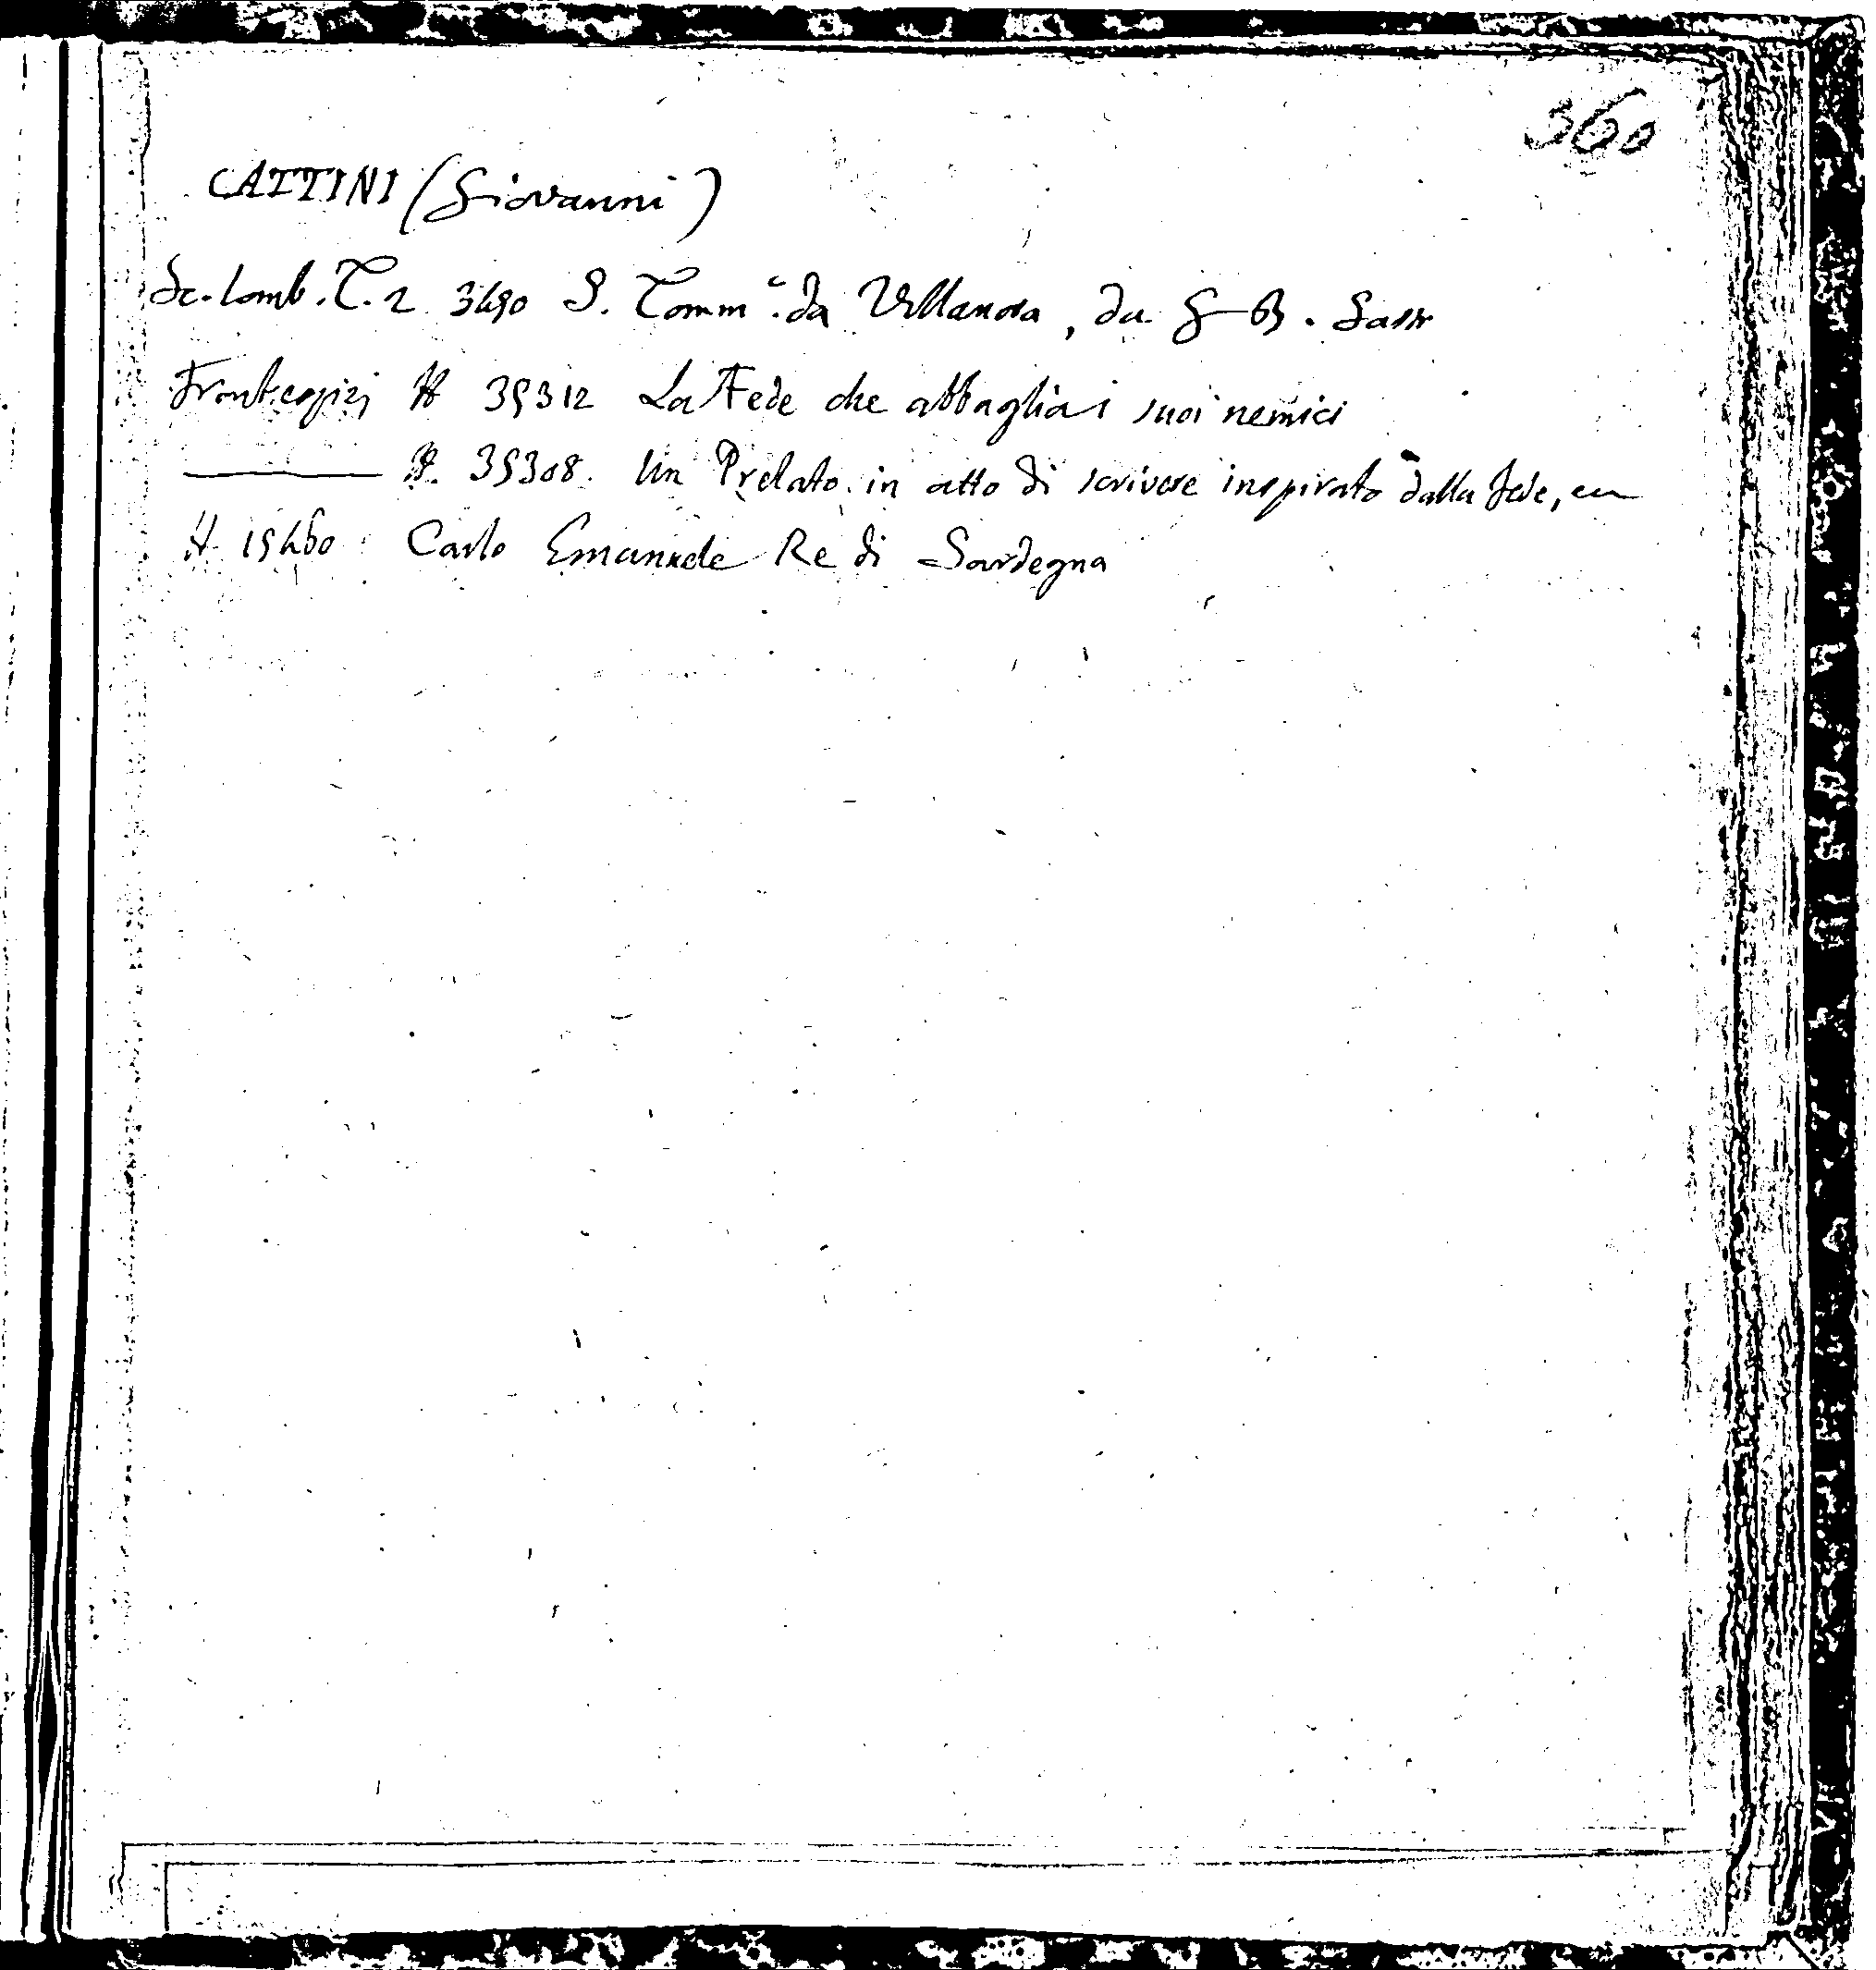 360
CATTINI (Giovanni)
Sc. Lomb. T. 2 3490 S. Tomm.º da Villanova, da G B. Sassi
Frontespizi H 35312 La Fede che abbaglia i suoi nemici
——— H. 35308. Un Prelato in atto di scrivere inspirato dalla fede,
H 15460 Carlo Emanuele Re di Sardegna